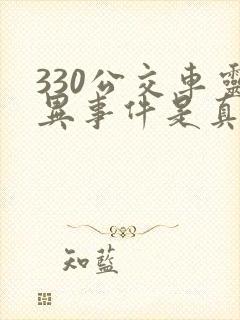 330公交车灵
异事件是真
知蓝